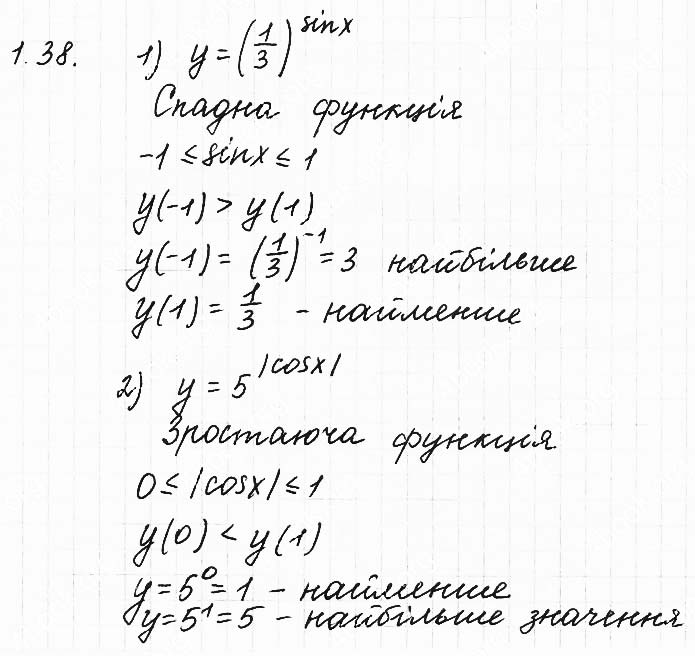 1.38. 1) y = (1/3)^sinx
Спадна функція
-1 ≤ sinx ≤ 1
y(-1) > y(1)
y(-1) = (1/3)^-1 = 3 найбільше
y(1) = 1/3 - найменше
2) y = 5^|cosx|
Зростаюча функція
0 ≤ |cosx| ≤ 1
y(0) < y(1)
y = 5^0 = 1 - найменше
y = 5^1 = 5 - найбільше значення